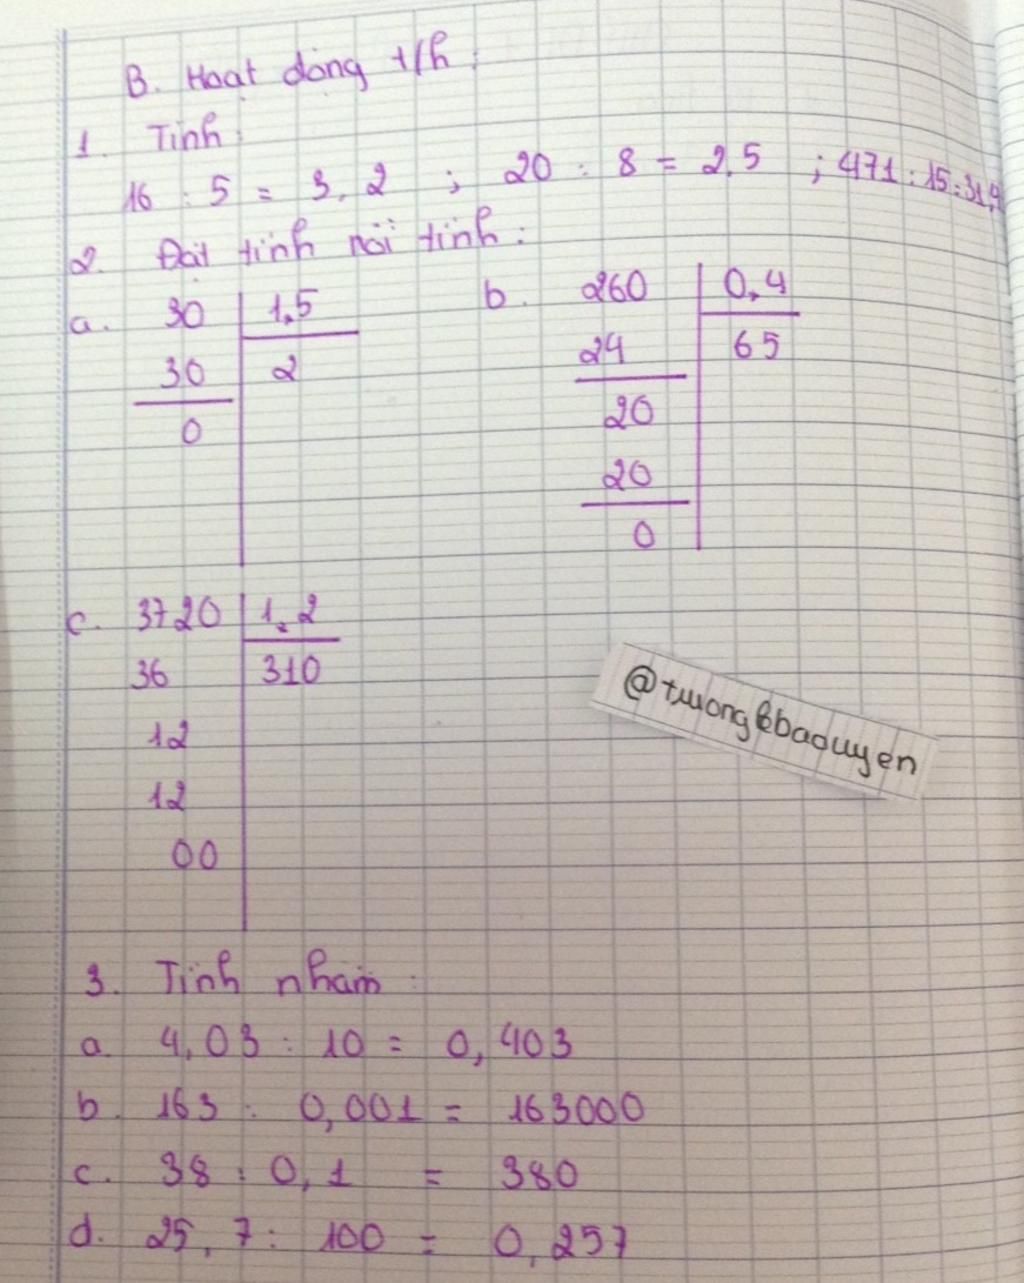 B. Hoạt động t/h:
1. Tính:
16 : 5 = 3,2 ; 20 : 8 = 2,5 ; 471 : 15 = 31,4
2. Đặt tính rồi tính:
a. 30 1,5 b. 260 0,4
30 2 24 65
0 20
20
0
c. 3720 1,2
36 310
12
12
00
@truongkbaouyen
3. Tính nhẩm:
a. 4,03 : 10 = 0,403
b. 163 : 0,001 = 163000
c. 38 : 0,1 = 380
d. 25,7 : 100 = 0,257